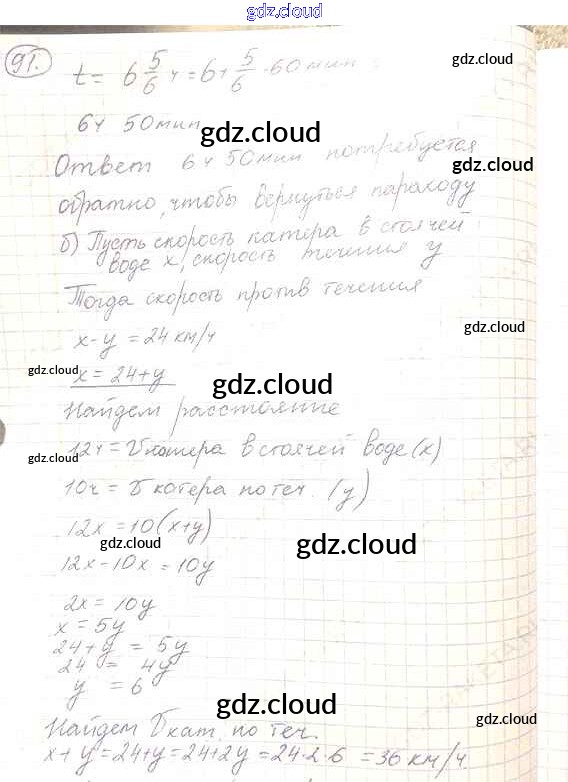 gdz.cloud
91.
t = 6 5/6 ч = 6 + 5/6 · 60 мин
6ч 50мин
gdz.cloud
gdz.cloud
Ответ 6ч 50мин потребуется
обратно, чтобы вернуться пароходу
б) Пусть скорость катера в стоячей
воде x, скорость течения y
Тогда скорость против течения
x-y = 24 км/ч
gdz.cloud
x = 24+y
gdz.cloud
gdz.cloud
Найдем расстояние
12ч = V катера в стоячей воде (x)
gdz.cloud
10ч = V котера по теч. (y)
12x = 10(x+y)
gdz.cloud
gdz.cloud
12x-10x = 10y
2x = 10y
x = 5y
24+y = 5y
24 = 4y
y = 6
gdz.cloud
gdz.cloud
Найдем V кат. по теч.
x+y = 24+y = 24+2y = 24·2·6 = 36 км/ч